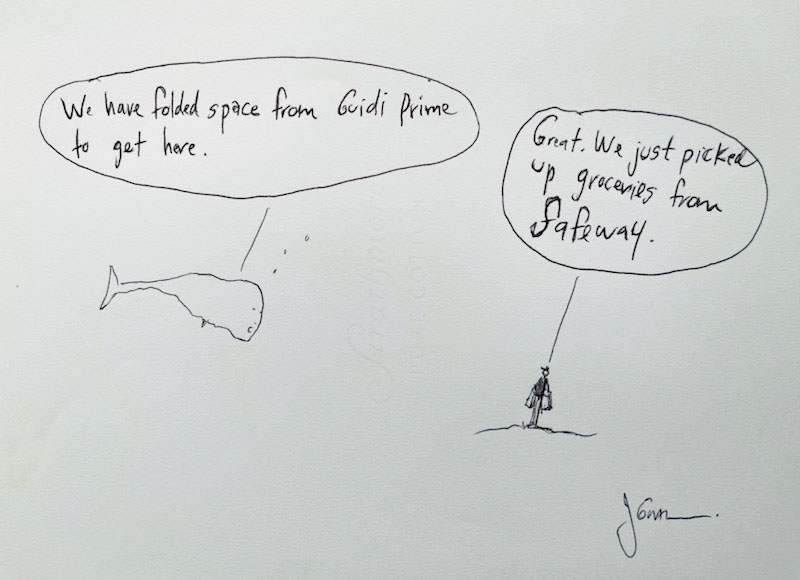 We have folded space from Guidi Prime
to get here.
Great. We just picked
up groceries from
Safeway.